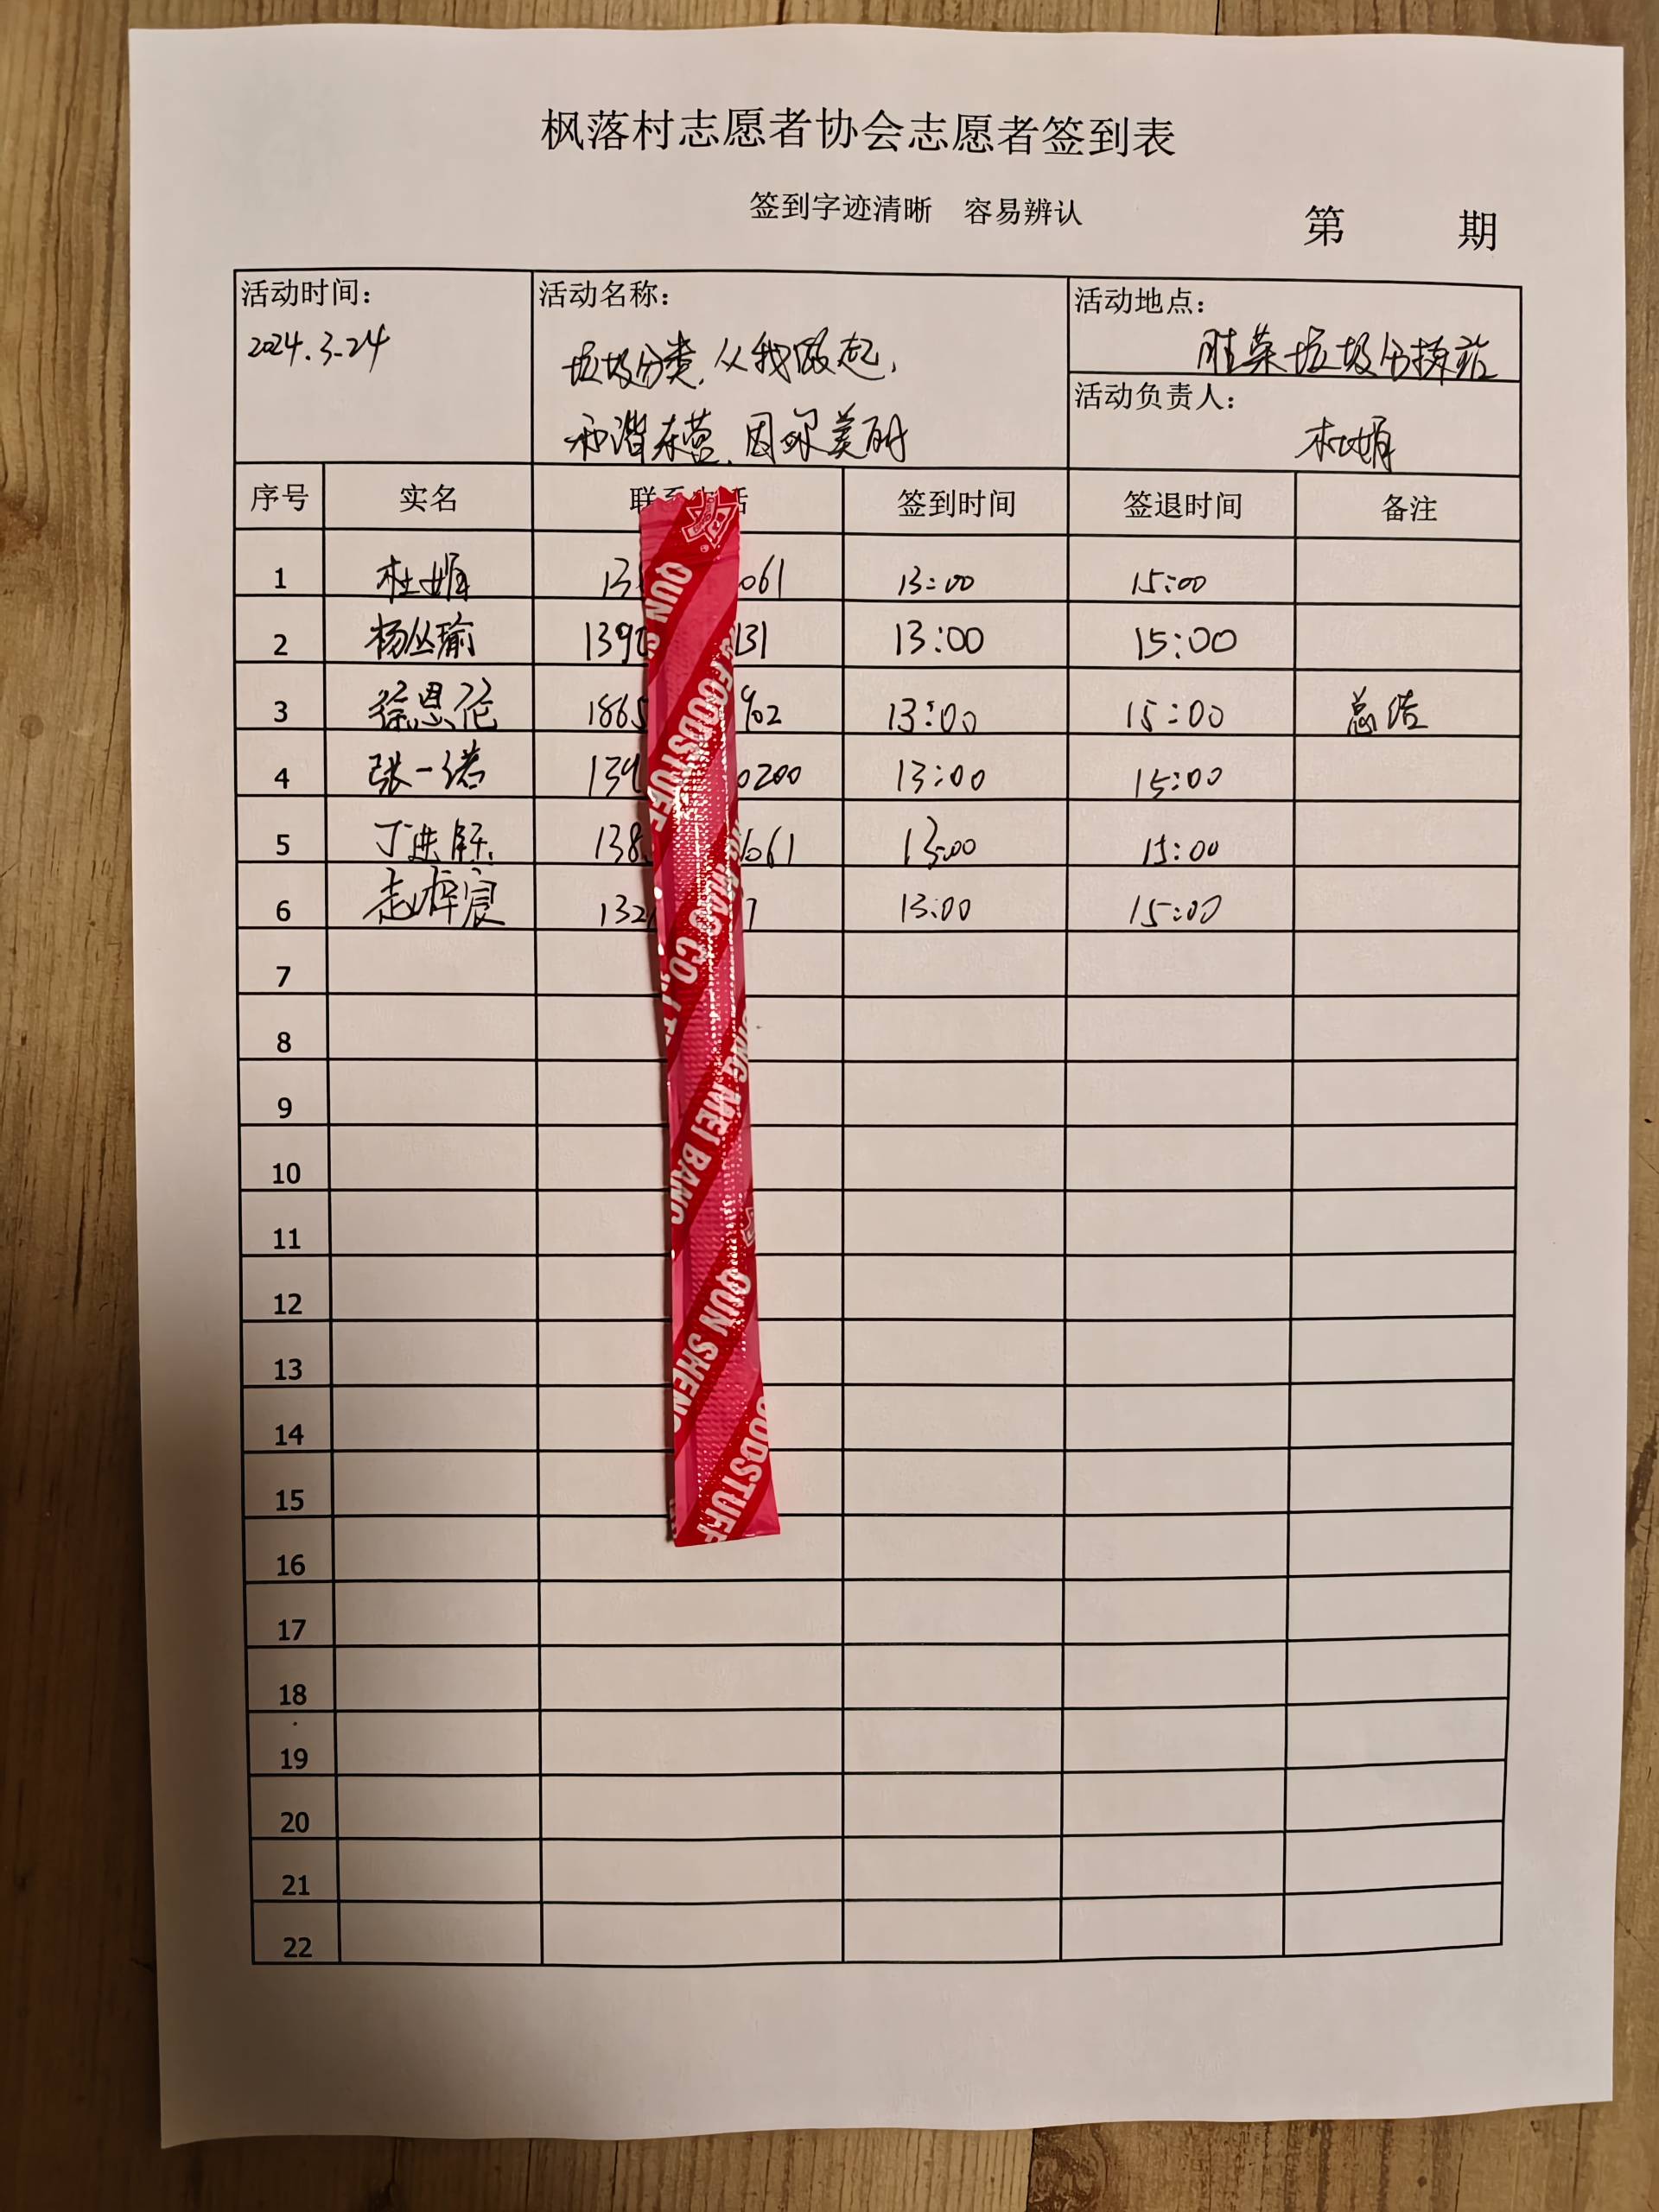 枫落村志愿者协会志愿者签到表
签到字迹清晰 容易辨认
第 期
活动时间：
2024.3-24
活动名称：
垃圾分类，从我做起，
和谐东营，因你美丽
活动地点：
胜菜垃圾分拣站
活动负责人：
杜娟
序号 实名 联系 话 签到时间 签退时间 备注
1 杜娟 13 061 13:00 15:00
2 杨丛瑜 139 131 13:00 15:00
3 徐恩 1865 902 13:00 15:00 总结
4 张一诺 139 0200 13:00 15:00
5 丁进 138 661 13:00 15:00
6 宸 132 7 13:00 15:00
7
8
9
10
11
12
13
14
15
16
17
18
19
20
21
22
QUN S
FOODSTUFF
MAO CO
ONG MEI BANG
QUN SHENG
OODSTUFF